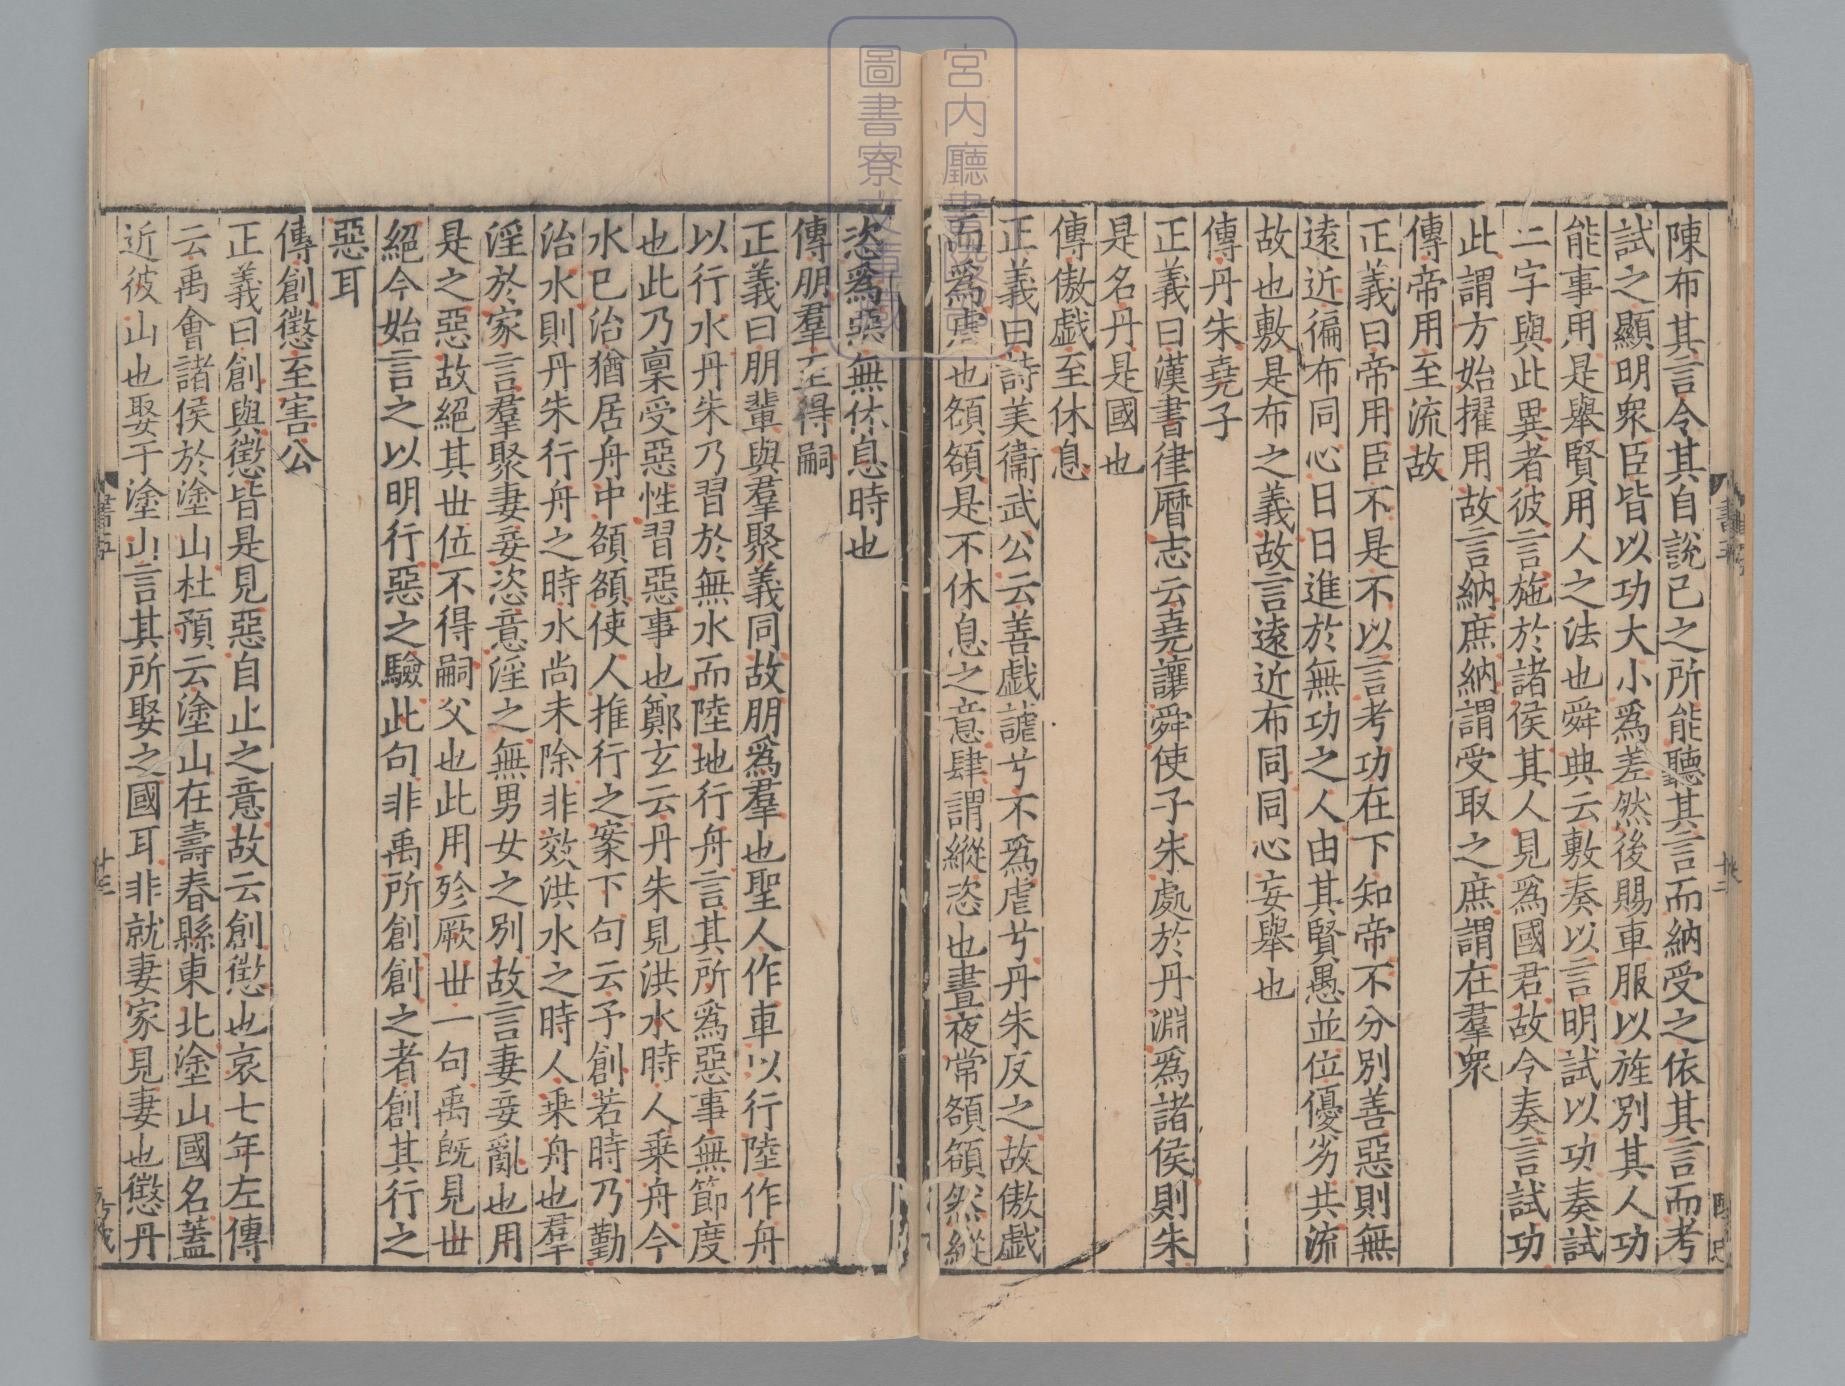 陳布其言令其自說己之所能聽其言而納受之依其言而考
試之顯明衆臣皆以功大小爲差然後賜車服以旌別其人功
能事用是舉賢用人之法也舜典云敷奏以言明試以功奏試
二字與此異者彼言施於諸侯其人見爲國君故令奏言試功
此謂方始擢用故言納庶納謂受取之庶謂在羣衆
傳帝用至流故
正義曰帝用臣不是不以言考功在下知帝不分別善惡則無
遠近徧布同心日日進於無功之人由其賢愚並位優劣共流
故也敷是布之義故言遠近布同同心妄舉也
傳丹朱堯子
正義曰漢書律曆志云堯讓舜使子朱處於丹淵爲諸侯則朱
是名丹是國也
傳傲戲至休息
正義曰詩美衞武公云善戲謔兮不爲虐兮丹朱反之故傲戲
而爲虐也頟頟是不休息之意肆謂縱恣也晝夜常頟頟然縱
恣爲惡無休息時也
傳朋羣至得嗣
正義曰朋輩與羣聚義同故朋爲羣也聖人作車以行陸作舟
以行水丹朱乃習於無水而陸地行舟言其所爲惡事無節度
也此乃稟受惡性習惡事也鄭玄云丹朱見洪水時人乗舟今
水已治猶居舟中頟頟使人推行之案下句云予創若時乃勤
治水則丹朱行舟之時水尚未除非效洪水之時人乗舟也羣
淫於家言羣聚妻妾恣意淫之無男女之別故言妻妾亂也用
是之惡故絕其世位不得嗣父也此用殄厥世一句禹既見世
絕今始言之以明行惡之驗此句非禹所創創之者創其行之
惡耳
傳創懲至害公
正義曰創與懲皆是見惡自止之意故云創懲也哀七年左傳
云禹會諸侯於塗山杜預云塗山在壽春縣東北塗山國名蓋
近彼山也娶于塗山言其所娶之國耳非就妻家見妻也懲丹
書五
廿三
宮内廳書陵部
圖書寮文庫